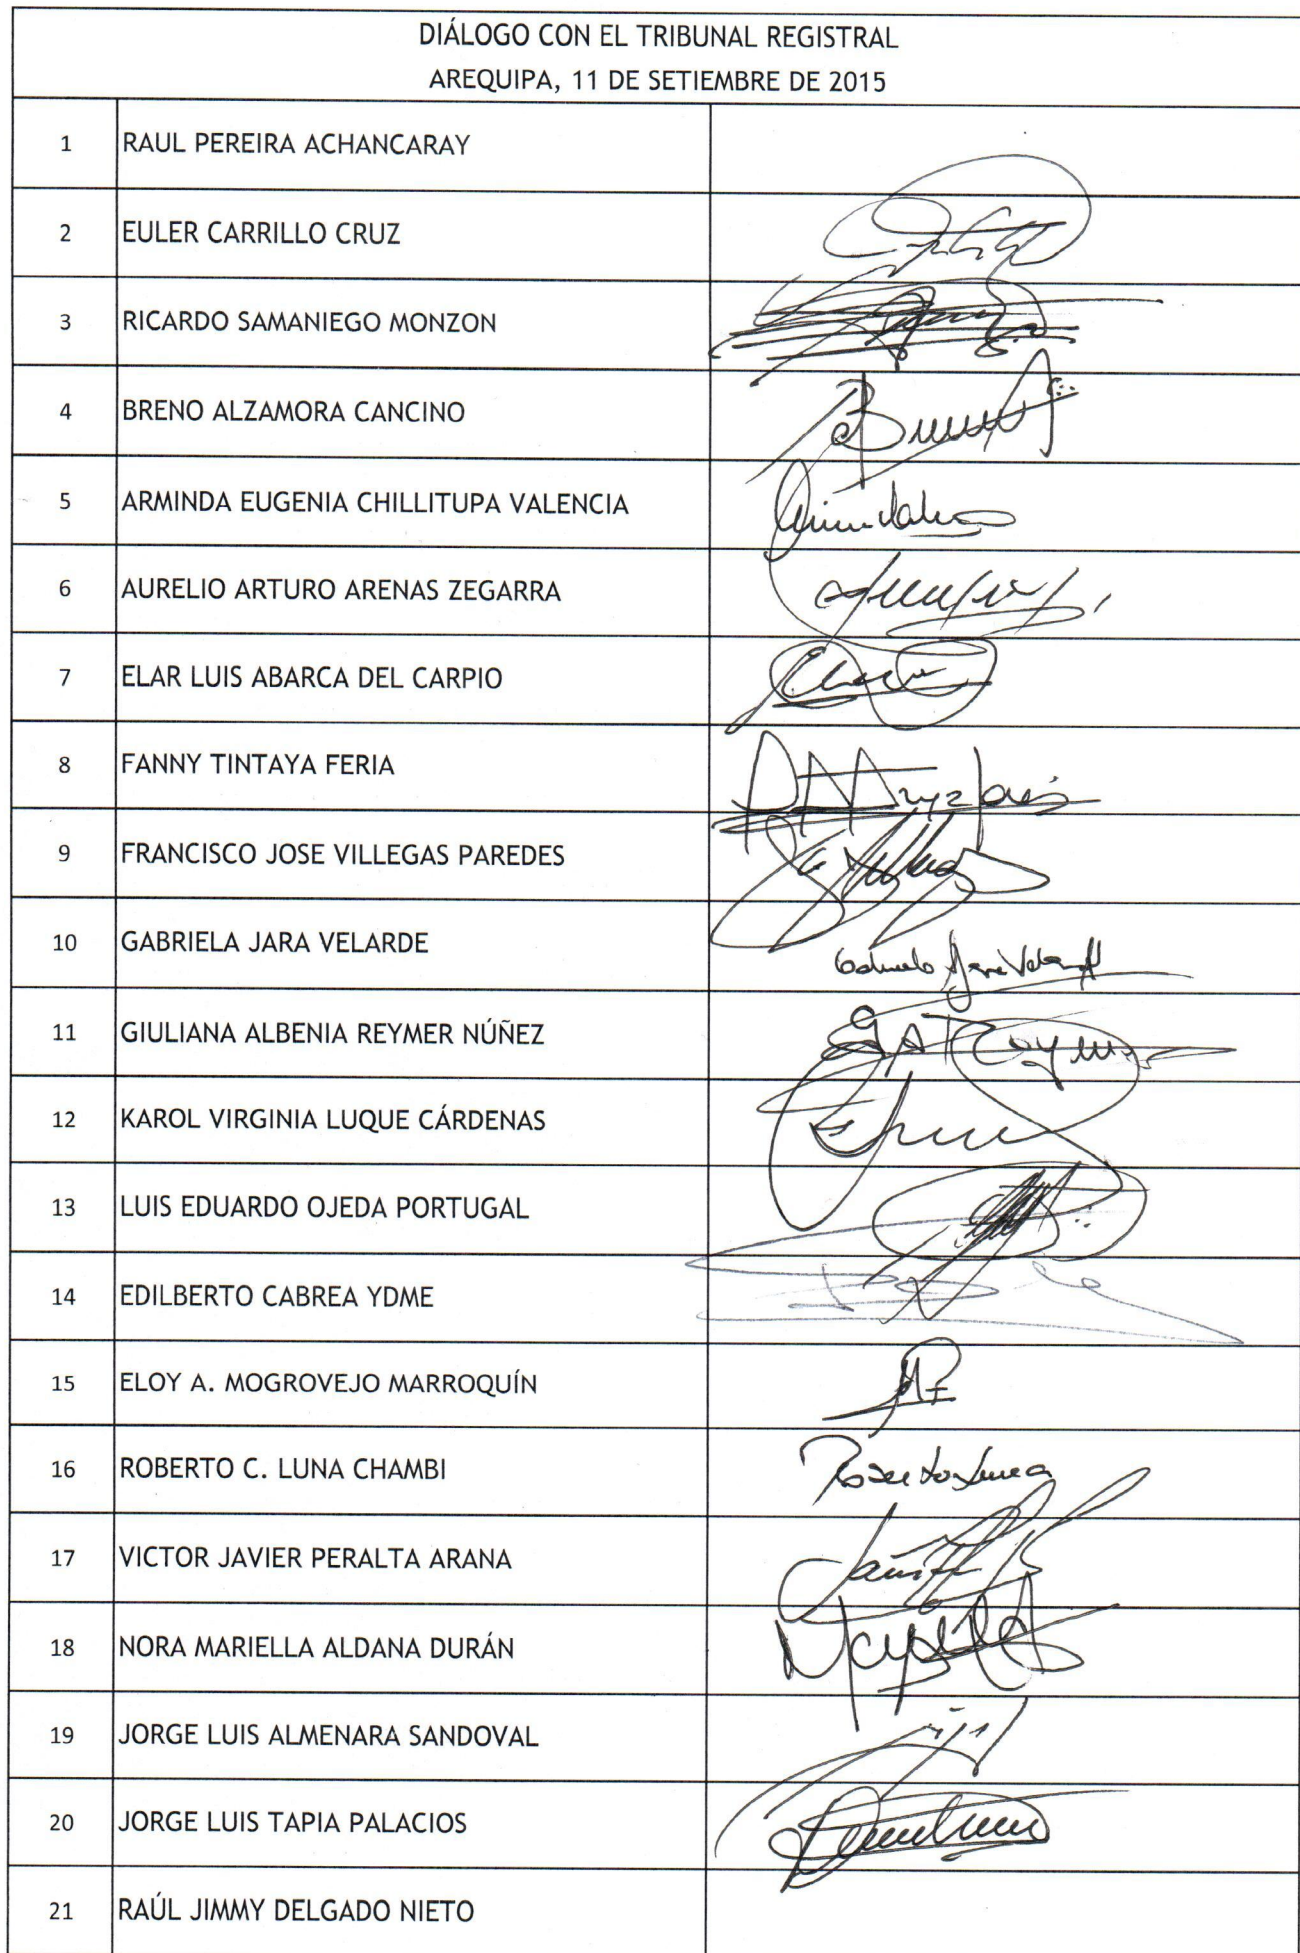 DIÁLOGO CON EL TRIBUNAL REGISTRAL
AREQUIPA, 11 DE SETIEMBRE DE 2015
1 RAUL PEREIRA ACHANCARAY
2 EULER CARRILLO CRUZ
3 RICARDO SAMANIEGO MONZON
4 BRENO ALZAMORA CANCINO
5 ARMINDA EUGENIA CHILLITUPA VALENCIA
6 AURELIO ARTURO ARENAS ZEGARRA
7 ELAR LUIS ABARCA DEL CARPIO
8 FANNY TINTAYA FERIA
9 FRANCISCO JOSE VILLEGAS PAREDES
10 GABRIELA JARA VELARDE
11 GIULIANA ALBENIA REYMER NÚÑEZ
12 KAROL VIRGINIA LUQUE CÁRDENAS
13 LUIS EDUARDO OJEDA PORTUGAL
14 EDILBERTO CABREA YDME
15 ELOY A. MOGROVEJO MARROQUÍN
16 ROBERTO C. LUNA CHAMBI
17 VICTOR JAVIER PERALTA ARANA
18 NORA MARIELLA ALDANA DURÁN
19 JORGE LUIS ALMENARA SANDOVAL
20 JORGE LUIS TAPIA PALACIOS
21 RAÚL JIMMY DELGADO NIETO